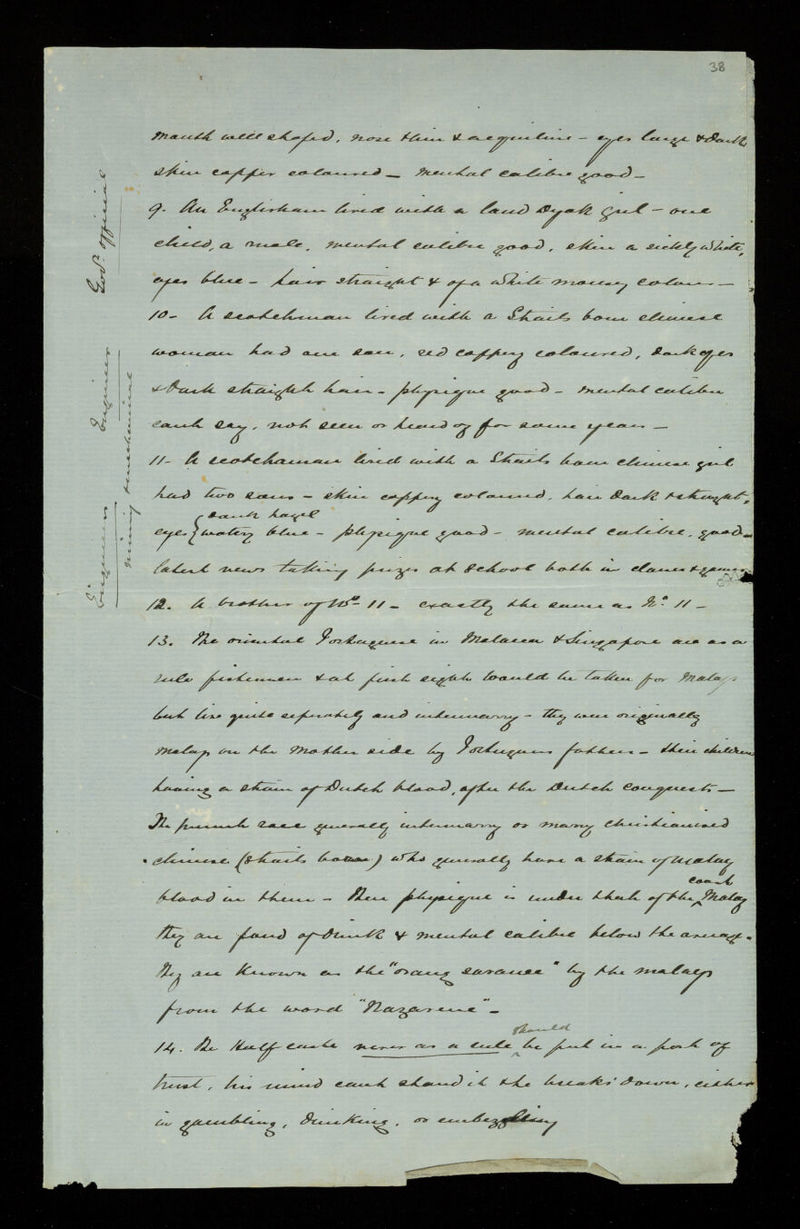 38
mouth well shaped, nose thin & acquiline - eyes large & dark
skin copper coloured - mental calibre good -
9. An Englishman lived with a land Dyak girl - one
child, a male, mental calibre good, skin a sickly white,
eyes blue - hair straight & of a white mousey colour -
10 - A scotchman lived with a Straits born chinese
woman had one son, red coppery coloured, dark eyes
& dark straight hair - physique good - mental calibre
cant say, not seen or heard of for some years -
11 - A scotchaman lived with a Straits born chinese girl
had two sons - skin coppery coloured, hair dark & straight,
dark hazel
eyes { watery blue - physique good - mental calibre, good -
latest news taking prizes at school both in classes & games
12. A brother of No. 11 - exactly the same as No. 11 -
13. The oriental Portuguese in Malacca & Singapore are as a
rule fishermen & at first sight would be taken for Malays
but live quite seperately and intermarry - they were originally
malays on the mother side by Portuguese fathers - their children
having a strain of Dutch blood, after the Dutch conquest -
The present race generally intermarry or marry christianised
chinese (straits born) who generally have a strain of malay
blood in them - Their physique is under that of the Malay
coast
they are fond of drink & mental calibre below the average.
They are known as the "orang saranee" by the malays
from the word "Nazarene" -
14. The Half caste never as a rule be put in a post of
should
trust, his mind cant stand it the breaks down, either
in gambling, drinking, or embezzling
Govt. official
Engineer
Engineer
mining mechanical